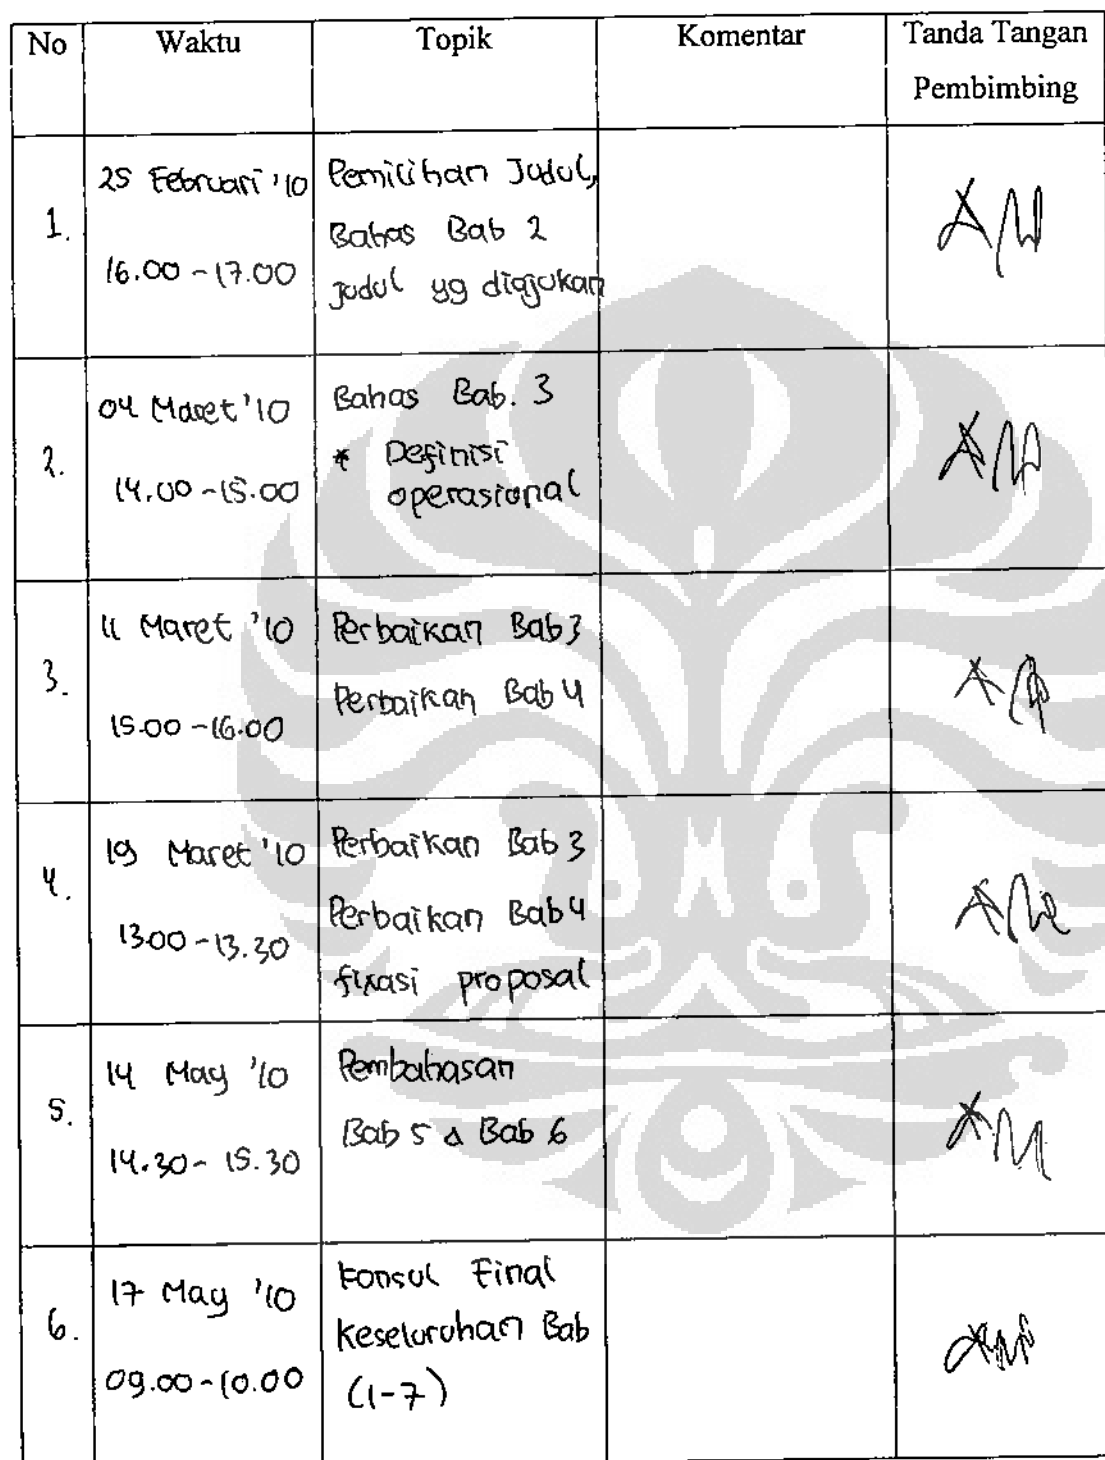 No Waktu Topik Komentar Tanda Tangan
Pembimbing
1.
25 Februari '10
16.00 - 17.00
Pemilihan Judul,
Bahas Bab 2
judul yg diajukan
2.
04 Maret '10
14.00 - 15.00
Bahas Bab. 3
* Definisi
operasional
3.
11 Maret '10
15.00 - 16.00
Perbaikan Bab 3
Perbaikan Bab 4
4.
19 Maret '10
13.00 - 13.30
Perbaikan Bab 3
Perbaikan Bab 4
fixasi proposal
5.
14 May '10
14.30 - 15.30
Pembahasan
Bab 5 & Bab 6
6.
17 May '10
09.00 - 10.00
Konsul Final
Keseluruhan Bab
(1-7)